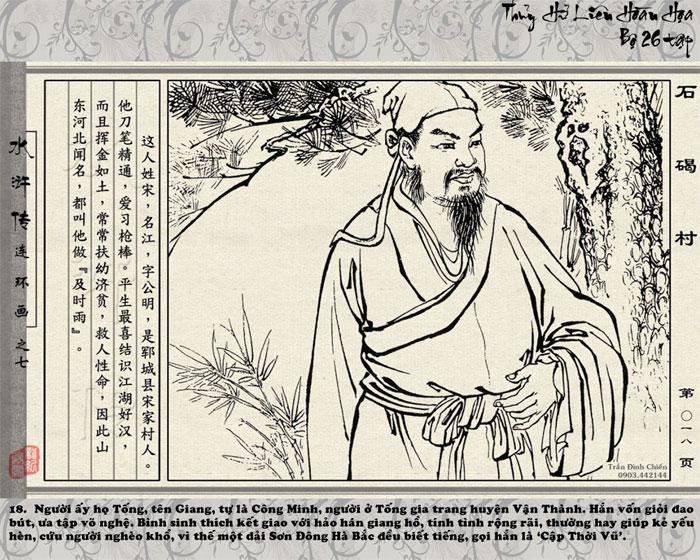 Thủy Hử Liên Hoàn Họa
Bộ 26 tập
水浒传连环画之七
石碣村
第〇一八页
这人姓宋，名江，字公明，是郓城县宋家村人。
他刀笔精通，爱习枪棒。平生最喜结识江湖好汉，
而且挥金如土，常常扶幼济贫，救人性命，因此山
东河北闻名，都叫他做『及时雨』。
Trần Đình Chiến
0903.442144
18. Người ấy họ Tống, tên Giang, tự là Công Minh, người ở Tống gia trang huyện Vận Thành. Hắn vốn giỏi dao
bút, ưa tập võ nghệ. Bình sinh thích kết giao với hảo hán giang hồ, tính tình rộng rãi, thường hay giúp kẻ yếu
hèn, cứu người nghèo khổ, vì thế một dải Sơn Đông Hà Bắc đều biết tiếng, gọi hắn là ‘Cập Thời Vũ’.